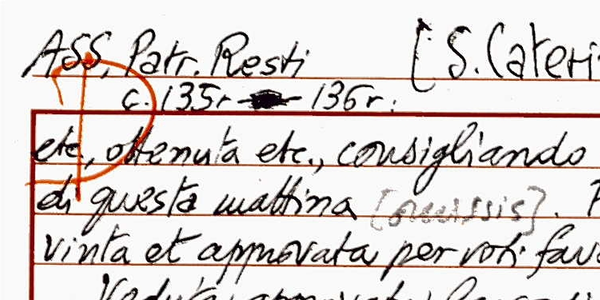 ASS, Patr. Resti [S. Cateri
c. 135r - 136r.
etc, ottenuta etc., consigliando
di questa mattina [omissis].
vinta et approvata per voti fav